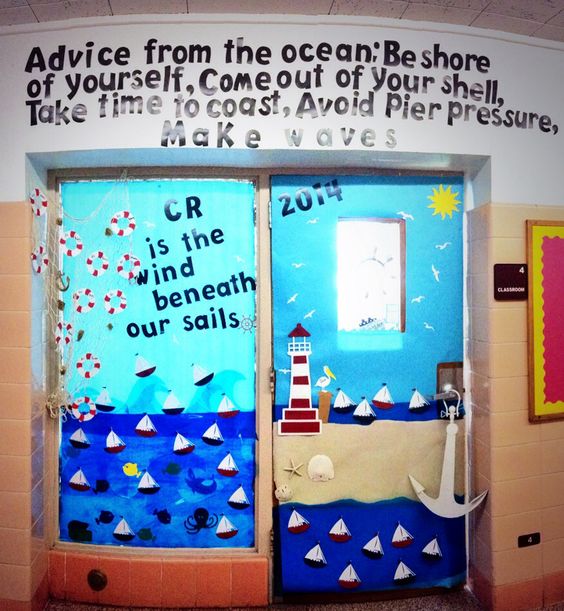 Advice from the ocean: Be shore
of yourself, Come out of your shell,
Take time to coast, Avoid Pier pressure,
Make waves
CR
is the
wind
beneath
our sails
2014
4
CLASSROOM
4